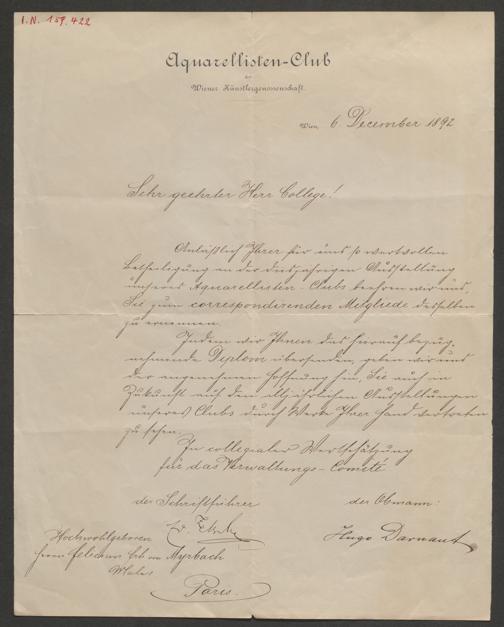 I.N. 159.422
Aquarellisten-Club
der
Wiener Künstlergenossenschaft.
Wien, 6 December 1892
Sehr geehrter Herr College!
Anläßlich Ihrer für uns so wertvollen
Betheiligung an der diesjährigen Ausstellung
unseres Aquarellisten-Clubs beehren wir uns,
Sie zum correspondirenden Mitgliede desselben
zu ernennen.
Indem wir Ihnen das hierauf bezug-
nehmende Diplom übersenden, geben wir uns
der angenehmen Hoffnung hin, Sie auch in
Zukunft auf den alljährlichen Ausstellungen
unseres Clubs durch Werke Ihrer Hand vertreten
zu sehen.
In collegialer Wertschätzung
für das Verwaltungs-Comité
der Schriftführer der Obmann:
Hugo Darnaut
Hochwohlgeboren
Herrn Felician von Myrbach
Maler
Paris.